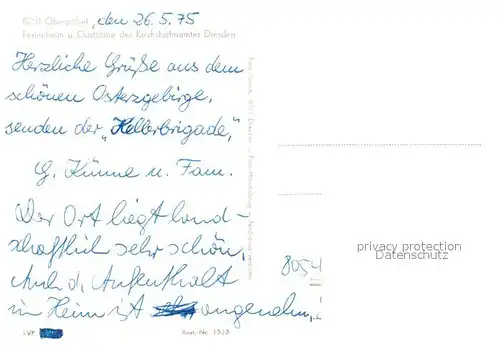 8231 Oberpöbel, den 26.5.75
Ferienheim u. Gaststätte des Reichsbahnamtes Dresden
Herzliche Grüße aus dem
schönen Osterzgebirge,
senden der „Hellerbrigade,“
G. Künne u. Fam.
Der Ort liegt land-
schaftlich sehr schön,
Auch d. Aufenthalt
im Heim ist angenehm,
EVP
Best.-Nr. 1528
8054
privacy protection
Datenschutz